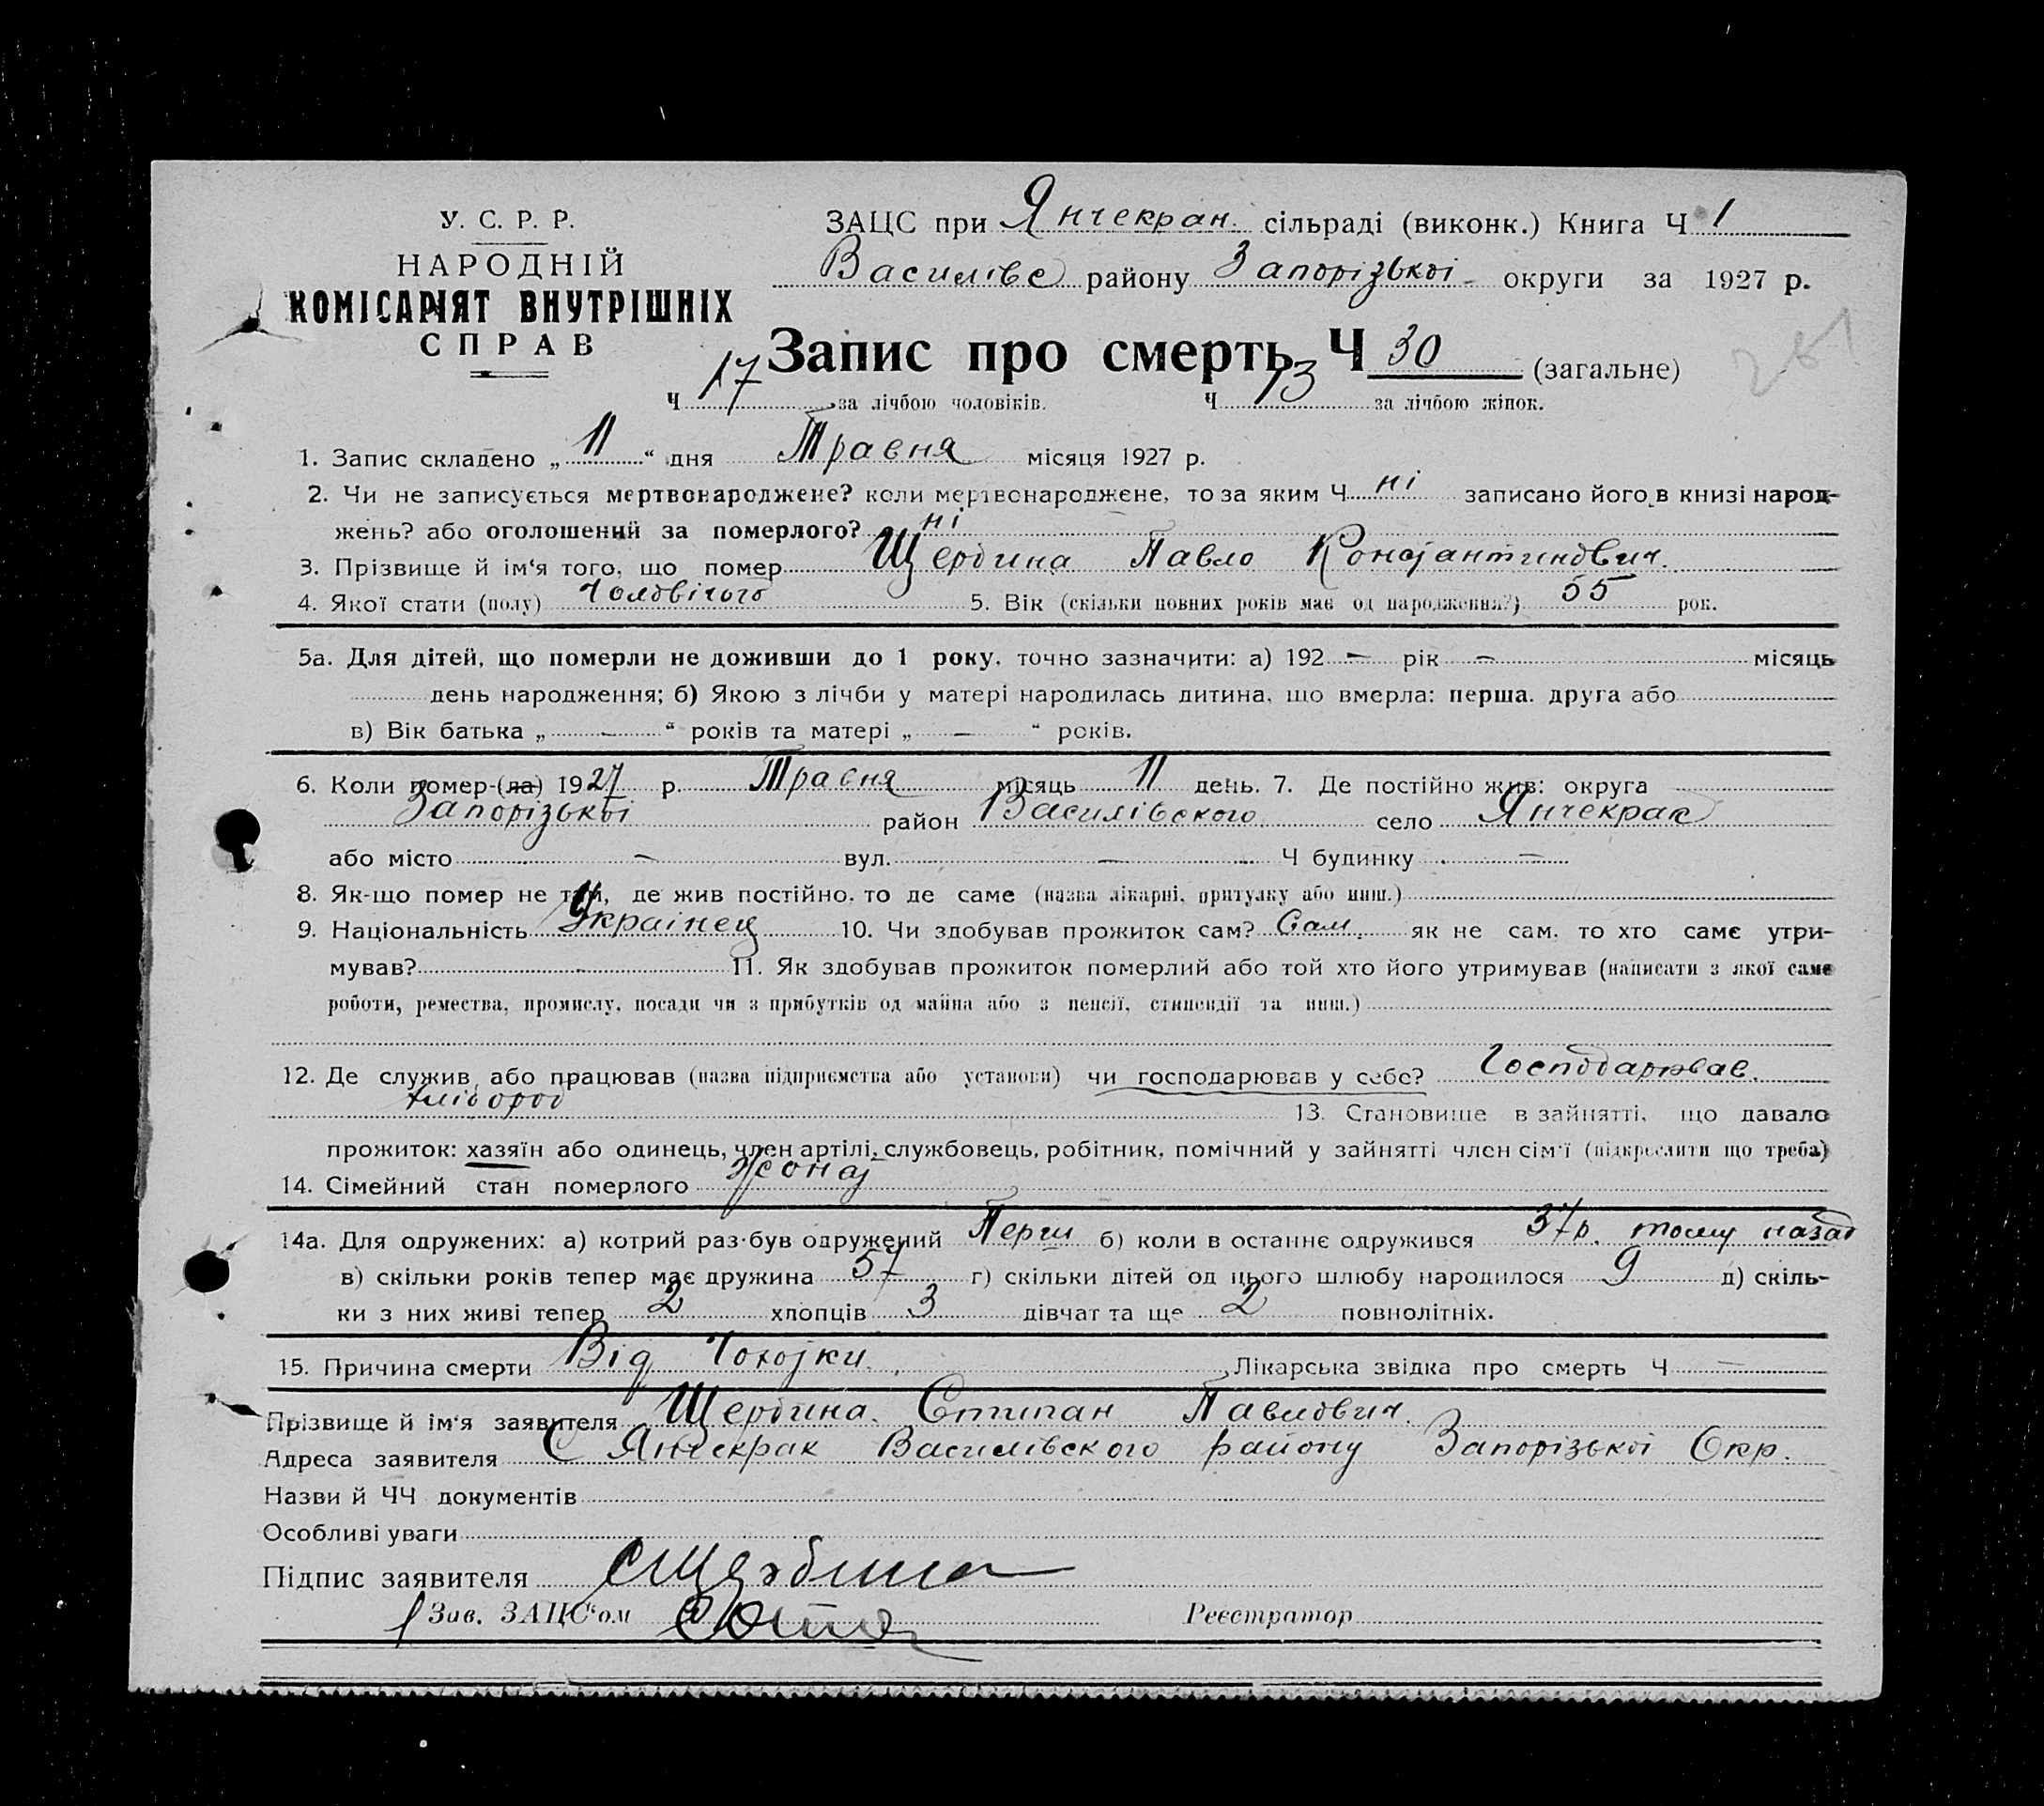 У. С. Р. Р.
НАРОДНІЙ
КОМІСАРІЯТ ВНУТРІШНІХ
СПРАВ
ЗАЦС при Янчекран. сільраді (виконк.) Книга Ч 1
Василівс району Запорізькоі округи за 1927 р.
Запис про смерть Ч 30 (загальне)
Ч 17 за лічбою чоловіків. Ч 13 за лічбою жінок.
1. Запис складено „11“ дня Травня місяця 1927 р.
2. Чи не записується мертвонароджене? коли мертвонароджене, то за яким Ч ні записано його в книзі народ-
жень? або оголошений за померлого? ні
3. Прізвище й ім‘я того, що помер Щербина Павло Константинович.
4. Якої стати (полу) Чоловічого 5. Вік (скільки повних років має од народження?) 55 рок.
5а. Для дітей, що померли не доживши до 1 року, точно зазначити: а) 192 — рік — місяць
день народження; б) Якою з лічби у матері народилась дитина, що вмерла: перша, друга або
в) Вік батька „ — “ років та матері „ — “ років.
6. Коли помер-(ла) 1927 р. Травня місяць 11 день. 7. Де постійно жив: округа
Запорізькоі район Василівского село Янчекрак
або місто — вул. — Ч будинку —
8. Як-що помер не там, де жив постійно, то де саме (назва лікарні, притулку або инш.)
9. Національність Украінец 10. Чи здобував прожиток сам? Сам. як не сам, то хто саме утри-
мував? 11. Як здобував прожиток померлий або той хто його утримував (написати з якої саме
роботи, ремества, промислу, посади чи з прибутків од майна або з пенсії, стипендії та инш.)
12. Де служив, або працював (назва підприємства або установи) чи господарював у себе? Господарював.
хлібороб 13. Становище в зайнятті, що давало
прожиток: хазяїн або одинець, член артілі, службовець, робітник, помічний у зайнятті член сім‘ї (підкреслити що треба)
14. Сімейний стан померлого Жонат
14а. Для одружених: а) котрий раз був одружений Перш б) коли в останнє одружився 37 р. тому назад
в) скільки років тепер має дружина 57 г) скільки дітей од цього шлюбу народилося 9 д) скіль-
ки з них живі тепер 2 хлопців 3 дівчат та ще 2 повнолітніх.
15. Причина смерти Від Чохотки. Лікарська звідка про смерть Ч —
Прізвище й ім‘я заявителя Щербина Стипан Павлович.
Адреса заявителя С Янчекрак Василівского району Запорізькоі Окр.
Назви й ЧЧ документів
Особливі уваги
Підпис заявителя СЩербина
Зав. ЗАЦС‘ом Реєстратор